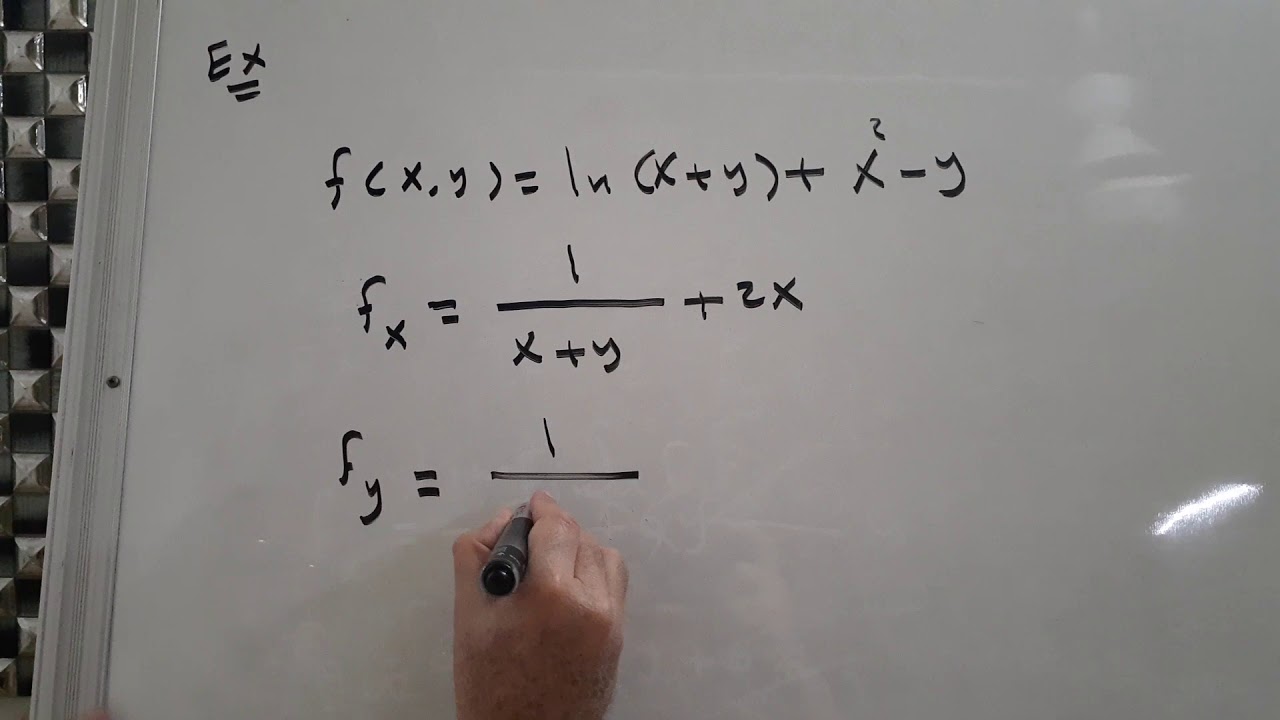 Ex
f(x,y) = ln(x+y) + x² - y
f_x = 1/(x+y) + 2x
f_y = 1/